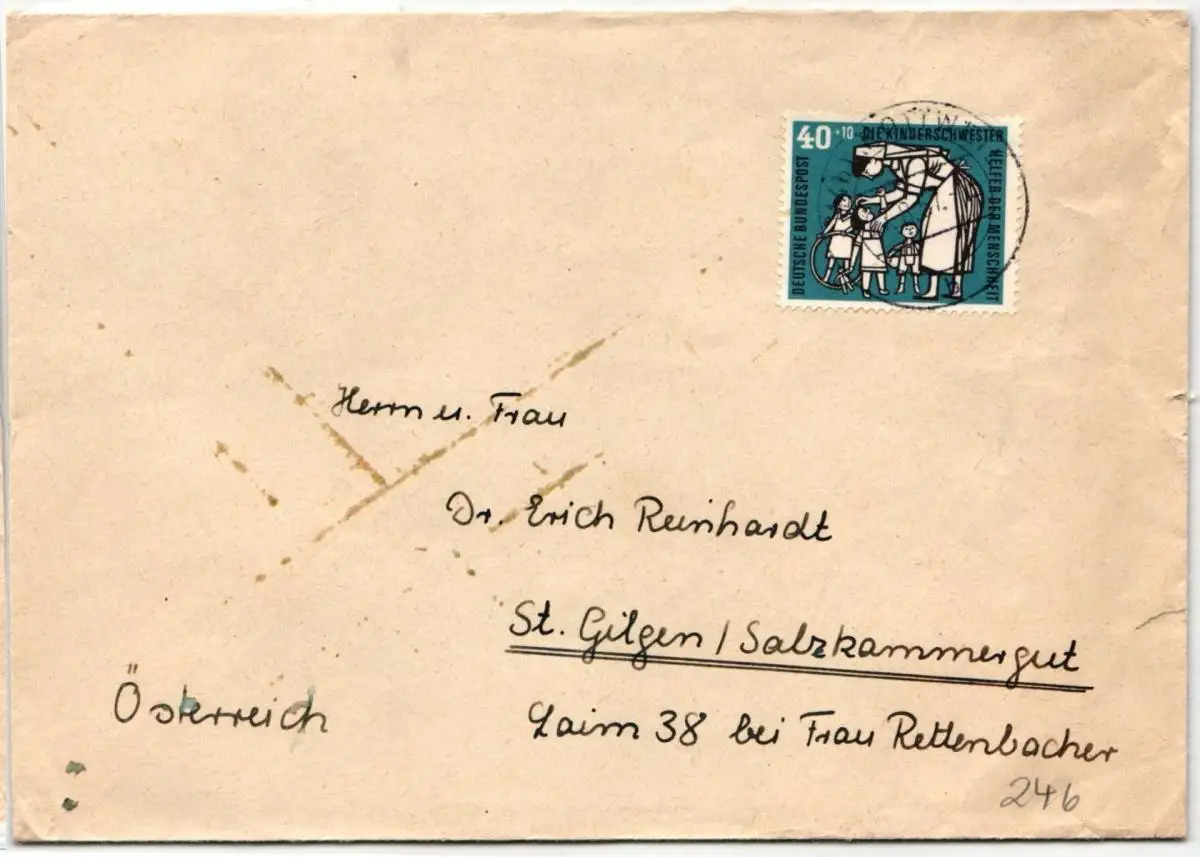 40 +10 DIE KINDERSCHWESTER
HELFER DER MENSCHHEIT
DEUTSCHE BUNDESPOST
Herrn u. Frau
Dr. Erich Reinhardt
St. Gilgen / Salzkammergut
Österreich
Laim 38 bei Frau Rettenbacher
246